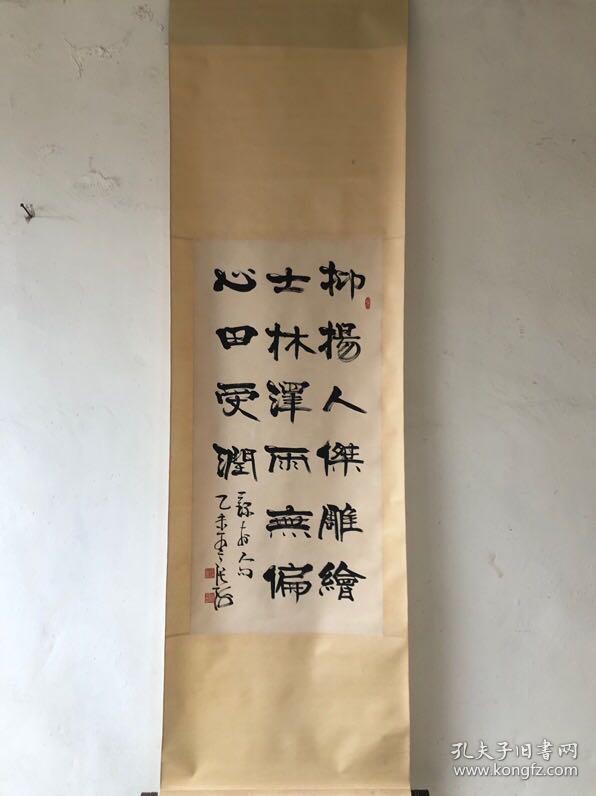 抑揚人傑雕繪
士林澤雨無偏
心田受潤
乙未
孔夫子旧書网
www.kongfz.com